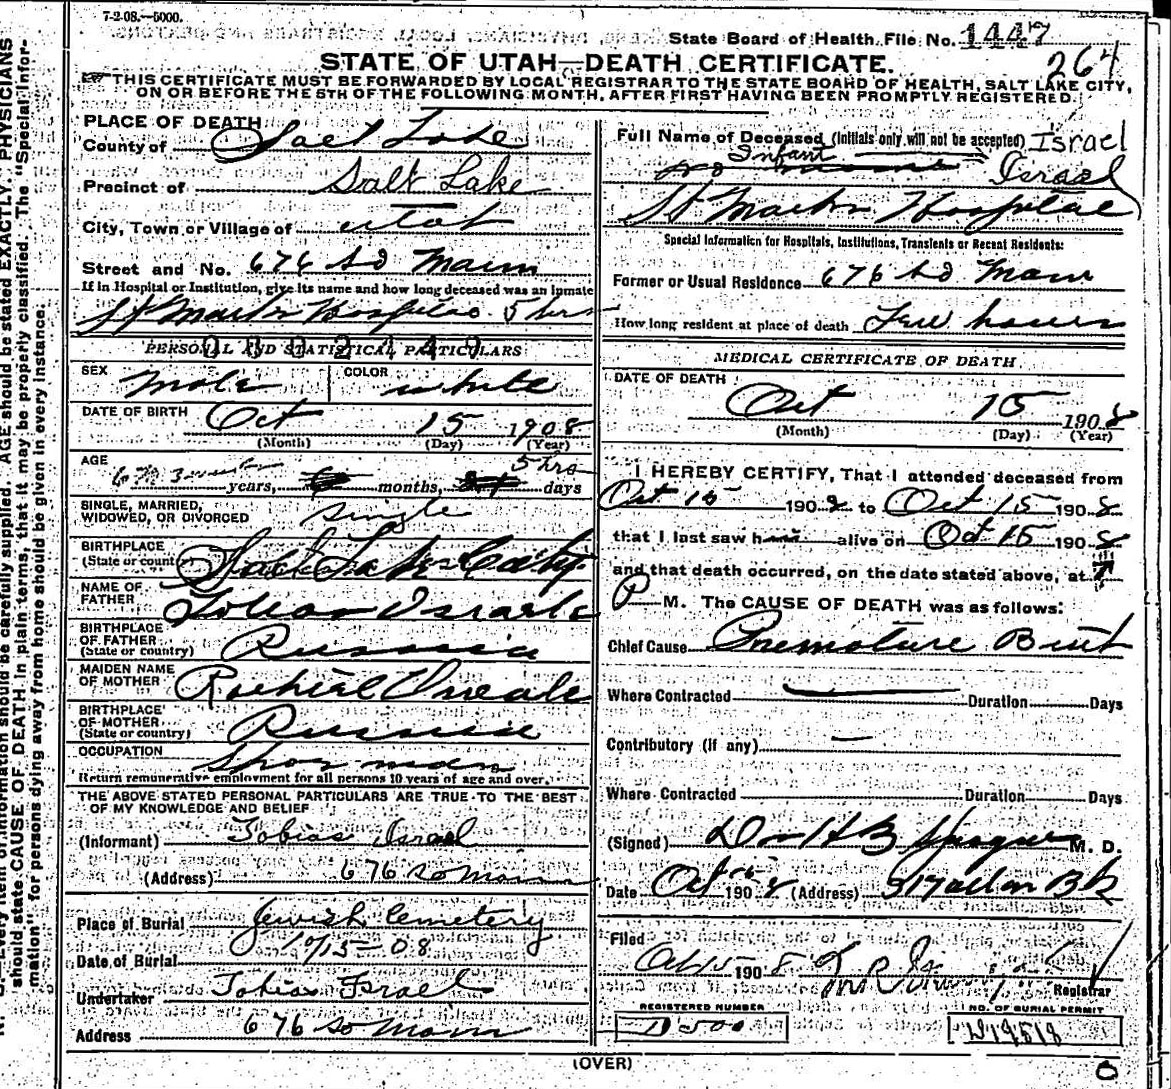 7-2-08.—5000.
State Board of Health File No. 1447
264
STATE OF UTAH—DEATH CERTIFICATE.
THIS CERTIFICATE MUST BE FORWARDED BY LOCAL REGISTRAR TO THE STATE BOARD OF HEALTH, SALT LAKE CITY,
ON OR BEFORE THE 5TH OF THE FOLLOWING MONTH, AFTER FIRST HAVING BEEN PROMPTLY REGISTERED.
PLACE OF DEATH
County of Salt Lake
Precinct of Salt Lake
City, Town or Village of Utah
Street and No. 676 So Main
If in Hospital or Institution, give its name and how long deceased was an inmate
St Marks Hospital 5 hrs
PERSONAL AND STATISTICAL PARTICULARS
SEX Male COLOR white
DATE OF BIRTH Oct 15 1908
(Month) (Day) (Year)
AGE years, months, 5 hrs days
SINGLE, MARRIED,
WIDOWED, OR DIVORCED single
BIRTHPLACE
(State or country) Salt Lake City
NAME OF
FATHER Tobias Israel
BIRTHPLACE
OF FATHER
(State or country) Russia
MAIDEN NAME
OF MOTHER
BIRTHPLACE
OF MOTHER
(State or country) Russia
OCCUPATION
Return remunerative employment for all persons 10 years of age and over.
THE ABOVE STATED PERSONAL PARTICULARS ARE TRUE TO THE BEST
OF MY KNOWLEDGE AND BELIEF
(Informant) Tobias Israel
(Address) 676 So Main
Place of Burial Jewish Cemetery
Date of Burial 10/15-08
Undertaker Tobias Israel
Address 676 So Main
Full Name of Deceased (Initials only will not be accepted) Israel
Infant Israel
St Marks Hospital
Special Information for Hospitals, Institutions, Transients or Recent Residents:
Former or Usual Residence 676 So Main
How long resident at place of death Few hours
MEDICAL CERTIFICATE OF DEATH
DATE OF DEATH
Oct 15 1908
(Month) (Day) (Year)
I HEREBY CERTIFY, That I attended deceased from
Oct 15 1908 to Oct 15 1908
that I last saw him alive on Oct 15 1908
and that death occurred, on the date stated above, at
P M. The CAUSE OF DEATH was as follows:
Chief Cause Premature Birth
Where Contracted Duration Days
Contributory (if any)
Where Contracted Duration Days
(Signed) Dr H B Sprague M. D.
Date Oct 15 1908 (Address)
Filed
Oct 15 1908 Registrar
REGISTERED NUMBER
D 500
NO. OF BURIAL PERMIT
(OVER)
should state CAUSE OF DEATH in plain terms, that it may be properly classified. The "Special Infor-
mation" for persons dying away from home should be given in every instance.